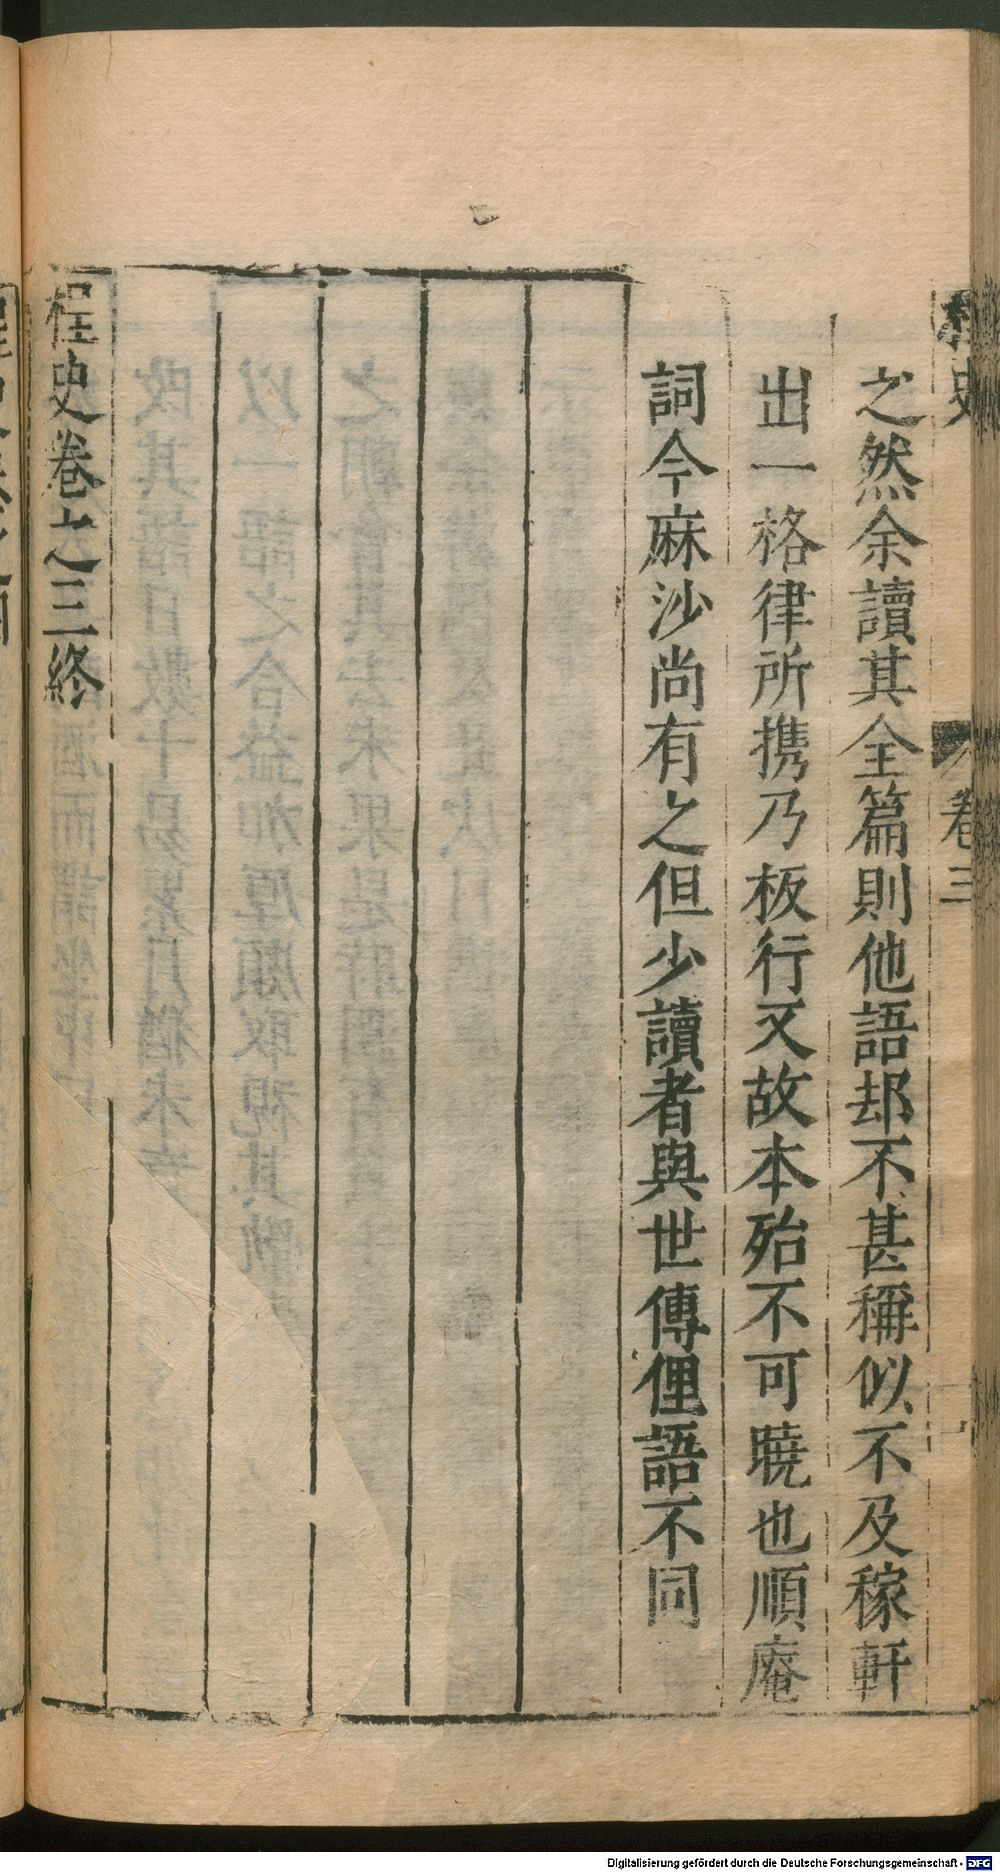 程史
卷三
之然余讀其全篇則他語却不甚稱似不及稼軒
出一格律所携乃板行又故本殆不可曉也順庵
詞今麻沙尚有之但少讀者與世傳俚語不同
桯史卷之三終
Digitalisierung gefördert durch die Deutsche Forschungsgemeinschaft - DFG